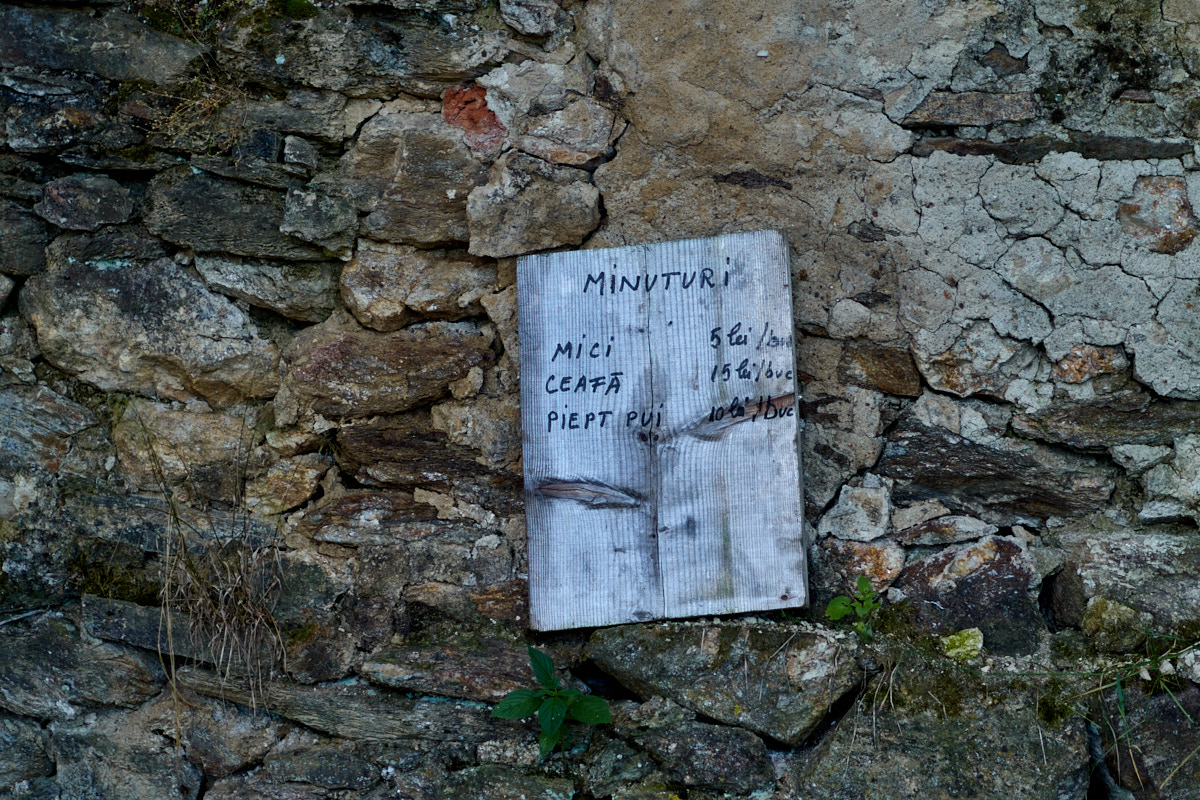 MINUTURI
MICI 5 lei/buc
CEAFĂ 15 lei/buc
PIEPT PUI 10 lei/buc